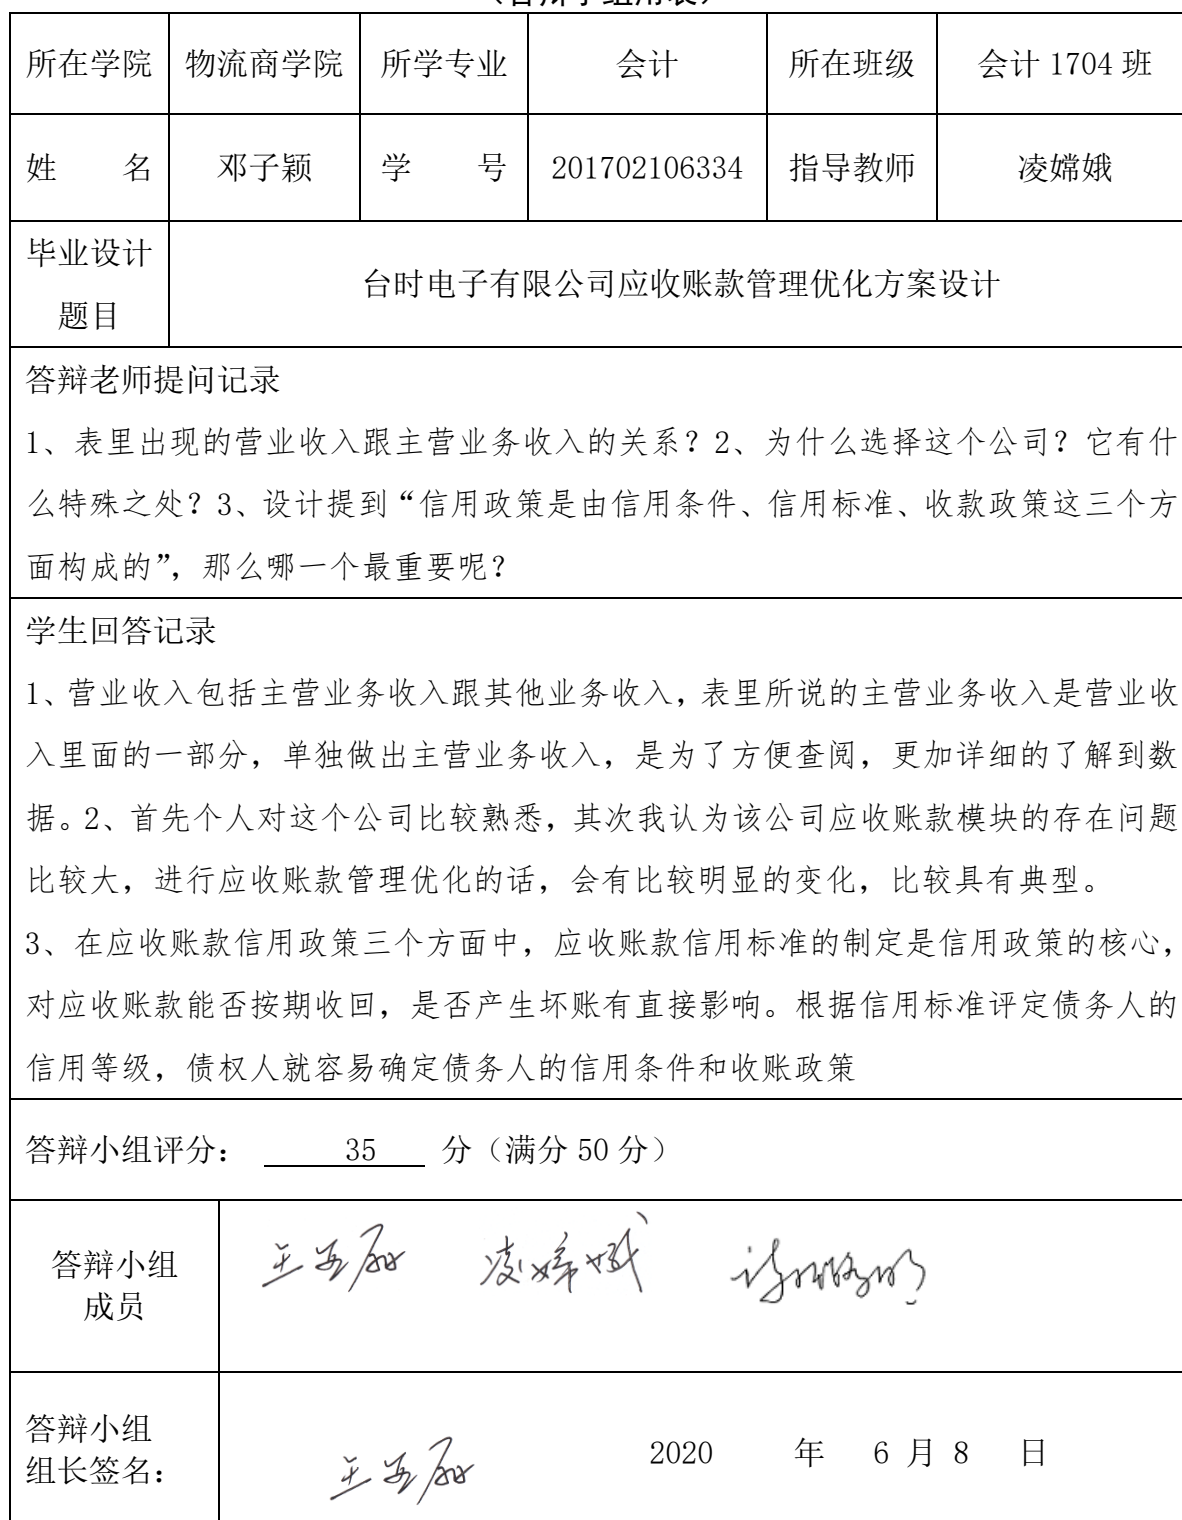 （答辩小组用表）
所在学院 物流商学院 所学专业 会计 所在班级 会计 1704 班
姓 名 邓子颖 学 号 201702106334 指导教师 凌嫦娥
毕业设计
题目
台时电子有限公司应收账款管理优化方案设计
答辩老师提问记录
1、表里出现的营业收入跟主营业务收入的关系？2、为什么选择这个公司？它有什
么特殊之处？3、设计提到“信用政策是由信用条件、信用标准、收款政策这三个方
面构成的”，那么哪一个最重要呢？
学生回答记录
1、营业收入包括主营业务收入跟其他业务收入，表里所说的主营业务收入是营业收
入里面的一部分，单独做出主营业务收入，是为了方便查阅，更加详细的了解到数
据。2、首先个人对这个公司比较熟悉，其次我认为该公司应收账款模块的存在问题
比较大，进行应收账款管理优化的话，会有比较明显的变化，比较具有典型。
3、在应收账款信用政策三个方面中，应收账款信用标准的制定是信用政策的核心，
对应收账款能否按期收回，是否产生坏账有直接影响。根据信用标准评定债务人的
信用等级，债权人就容易确定债务人的信用条件和收账政策
答辩小组评分： 35 分（满分 50 分）
答辩小组
成员
凌嫦娥
答辩小组
组长签名：
2020 年 6 月 8 日